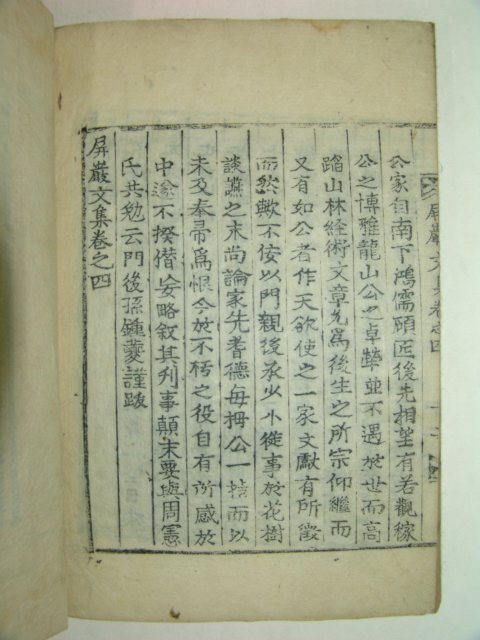 屏巖文集卷之四
公家自南下鴻儒碩匠後先相望有若觀稼
公之博雅龍山公之卓犖並不遇於世而高
踏山林經術文章允爲後生之所宗仰繼而
又有如公者作天欲使之一家文獻有所徵
而然歟不佞以門親後承少小從事於花樹
談讌之末尚論家先耆德每拇公一指而以
未及奉帚爲恨今於不朽之役自有所感於
中遂不揆僭妄略敘其刋事顚末要與周憲
氏共勉云門後孫鍾夔謹跋
屏巖文集卷之四